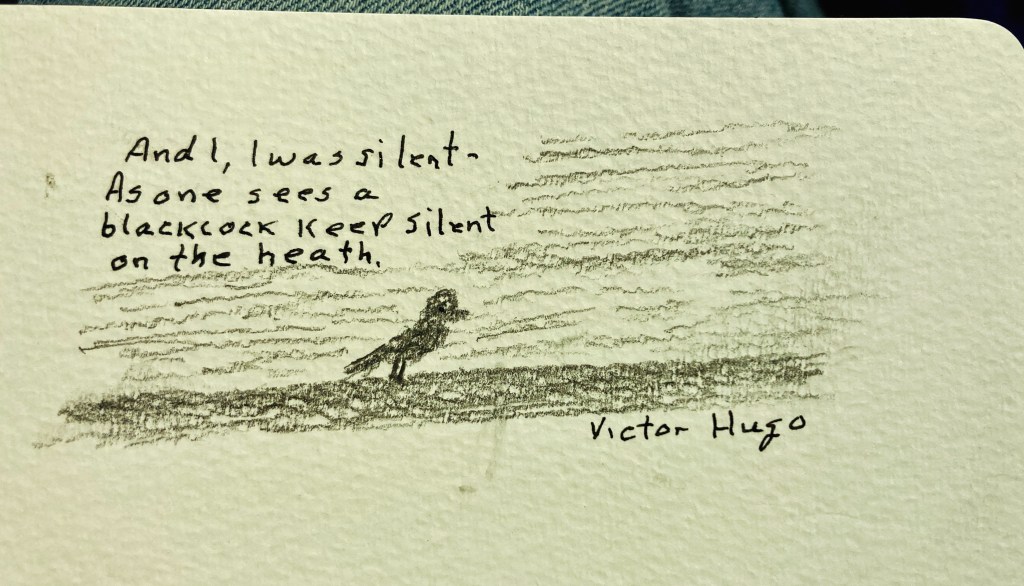 And I, I was silent-
As one sees a
blackcock keep silent
on the heath.
Victor Hugo